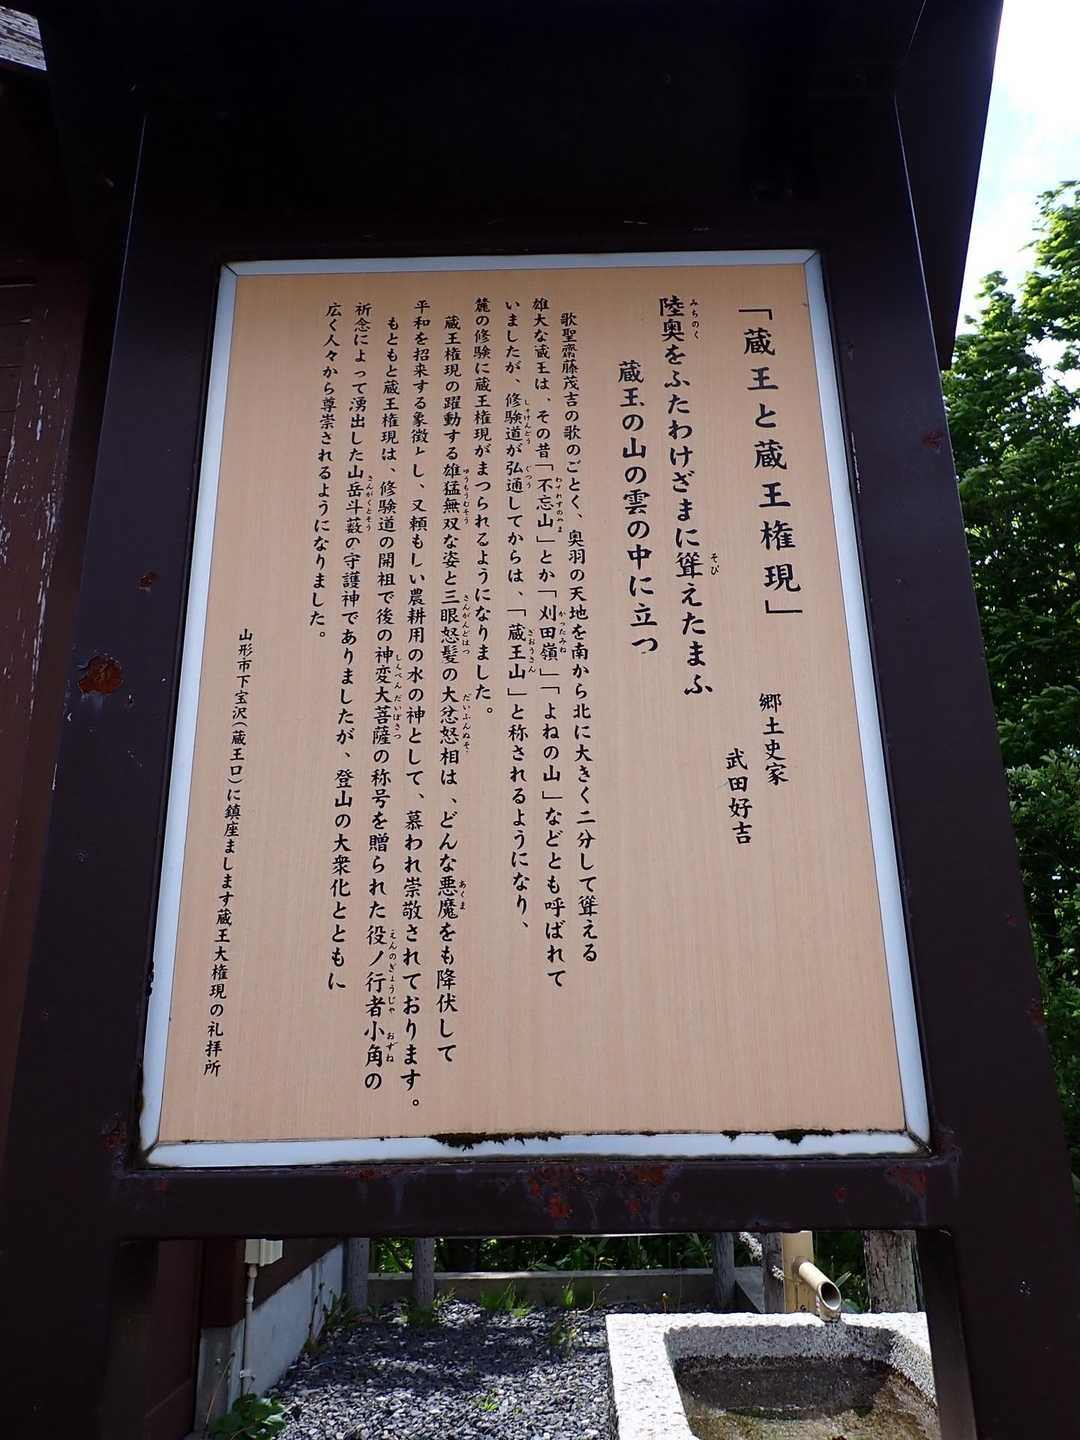 「蔵王と蔵王権現」
郷土史家
武田好吉
陸奥をふたわけざまに聳えたまふ
蔵王の山の雲の中に立つ
歌聖齋藤茂吉の歌のごとく、奥羽の天地を南から北に大きく二分して聳える
雄大な蔵王は、その昔「不忘山」とか「刈田嶺」「よねの山」などとも呼ばれて
いましたが、修験道が弘通してからは、「蔵王山」と称されるようになり、
麓の修験に蔵王権現がまつられるようになりました。
蔵王権現の躍動する雄猛無双な姿と三眼怒髪の大忿怒相は、どんな悪魔をも降伏して
平和を招来する象徴とし、又頼もしい農耕用の水の神として、慕われ崇敬されております。
もともと蔵王権現は、修験道の開祖で後の神変大菩薩の称号を贈られた役ノ行者小角の
祈念によって湧出した山岳斗薮の守護神でありましたが、登山の大衆化とともに
広く人々から尊崇されるようになりました。
山形市下宝沢(蔵王口)に鎮座まします蔵王大権現の礼拝所